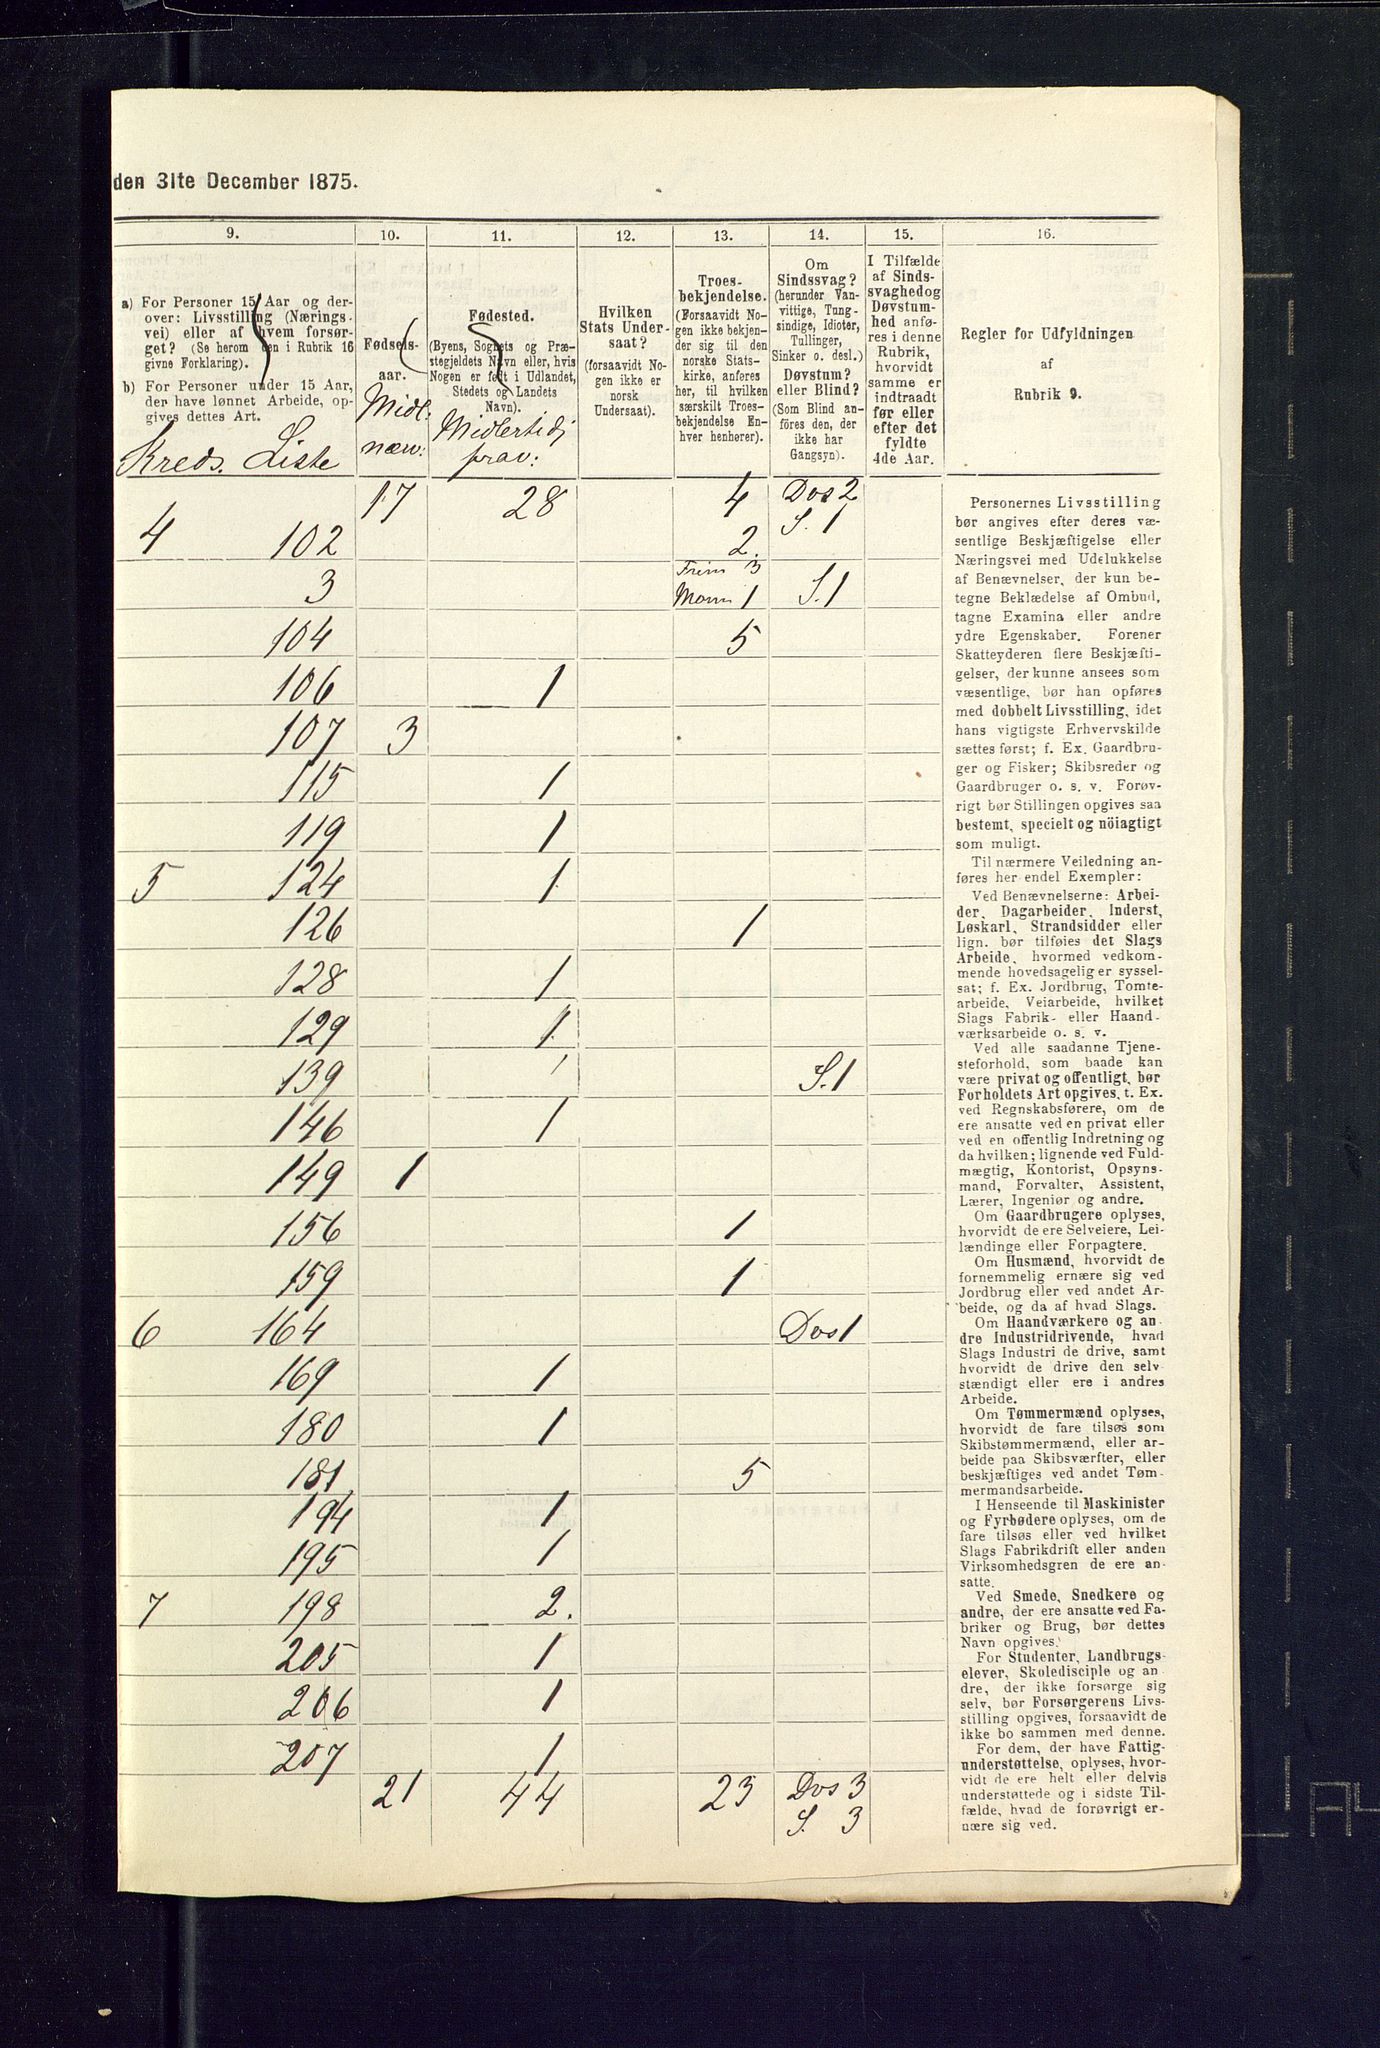 den 31te December 1875.
9. 10. 11. 12. 13. 14. 15. 16.
a) For Personer 15 Aar og der-
over: Livsstilling (Nærings-
vei) eller af hvem forsør-
get? (Se herom den i Rubrik 16
givne Forklaring).
b) For Personer under 15 Aar,
der have lønnet Arbeide, op-
gives dettes Art.
Kreds. Liste
Fødsels-
aar.
Midl:
næv:
Fødested.
(Byens, Sognets og Præ-
stegjeldets Navn eller, hvis
Nogen er født i Udlandet,
Stedets og Landets
Navn).
Midlertidj
frav:
Hvilken
Stats Under-
saat?
(forsaavidt No-
gen ikke er
norsk
Undersaat).
Troes-
bekjendelse.
(Forsaavidt No-
gen ikke bekjen-
der sig til den
norske Stats-
kirke, anføres
her, til hvilken
særskilt Troes-
bekjendelse En-
hver henhører).
Om
Sindssvag?
(herunder Van-
vittige, Tung-
sindige, Idioter,
Tullinger,
Sinker o. desl.)
Døvstum?
eller Blind?
(Som Blind an-
føres den, der
ikke har
Gangsyn).
I Tilfælde
af Sinds-
svaghed og
Døvstum-
hed anfø-
res i denne
Rubrik,
hvorvidt
samme er
indtraadt
før eller
efter det
fyldte
4de Aar.
Regler for Udfyldningen
af
Rubrik 9.
17 28 4 Døs 2
S. 1
4 102 2.
3 Frim 3
Morm 1 S. 1
104 5
106 1
107 3
115 1
119 1
5 124 1
126 1
128 1
129 1
139 S. 1
146 1
149 1
156 1
159 1
6 164 Døs 1
169 1
180 1
181 5
194 1
195 1
7 198 2.
205 1
206 1
207 1
21 44 23 Døs 3
S. 3
Personernes Livsstilling
bør angives efter deres væ-
sentlige Beskjæftigelse eller
Næringsvei med Udelukkelse
af Benævnelser, der kun be-
tegne Beklædelse af Ombud,
tagne Examina eller andre
ydre Egenskaber. Forener
Skatteyderen flere Beskjæfti-
gelser, der kunne ansees som
væsentlige, bør han opføres
med dobbelt Livsstilling, idet
hans vigtigste Erhvervskilde
sættes først; f. Ex. Gaardbru-
ger og Fisker; Skibsreder og
Gaardbruger o. s. v. Forøv-
rigt bør Stillingen opgives saa
bestemt, specielt og nöiagtigt
som muligt.
Til nærmere Veiledning an-
føres her endel Exempler:
Ved Benævnelserne: Arbei-
der, Dagarbeider, Inderst,
Løskarl, Strandsidder eller
lign. bør tilføies det Slags
Arbeide, hvormed vedkom-
mende hovedsagelig er syssel-
sat; f. Ex. Jordbrug, Tomte-
arbeide, Veiarbeide, hvilket
Slags Fabrik- eller Haand-
værksarbeide o. s. v.
Ved alle saadanne Tjene-
steforhold, som baade kan
være privat og offentligt, bør
Forholdets Art opgives, t. Ex.
ved Regnskabsførere, om de
ere ansatte ved en privat eller
ved en offentlig Indretning og
da hvilken; lignende ved Fuld-
mægtig, Kontorist, Opsyns-
mand, Forvalter, Assistent,
Lærer, Ingeniør og andre.
Om Gaardbrugere oplyses,
hvorvidt de ere Selveiere, Lei-
lændinge eller Forpagtere.
Om Husmænd, hvorvidt de
fornemmelig ernære sig ved
Jordbrug eller ved andet Ar-
beide, og da af hvad Slags.
Om Haandværkere og an-
dre Industridrivende, hvad
Slags Industri de drive, samt
hvorvidt de drive den selv-
stændigt eller ere i andres
Arbeide.
Om Tømmermænd oplyses,
hvorvidt de fare tilsøs som
Skibstømmermænd, eller ar-
beide paa Skibsværfter, eller
beskjæftiges ved andet Tøm-
mermandsarbeide.
I Henseende til Maskinister
og Fyrbødere oplyses, om de
fare tilsøs eller ved hvilket
Slags Fabrikdrift eller anden
Virksomhedsgren de ere an-
satte.
Ved Smede, Snedkere og
andre, der ere ansatte ved Fa-
briker og Brug, bør dettes
Navn opgives.
For Studenter, Landbrugs-
elever, Skoledisciple og an-
dre, der ikke forsørge sig
selv, bør Forsørgerens Livs-
stilling opgives, forsaavidt de
ikke bo sammen med denne.
For dem, der have Fattig-
understøttelse, oplyses, hvor-
vidt de ere helt eller delvis
understøttede og i sidste Til-
fælde, hvad de forøvrigt er-
nære sig ved.